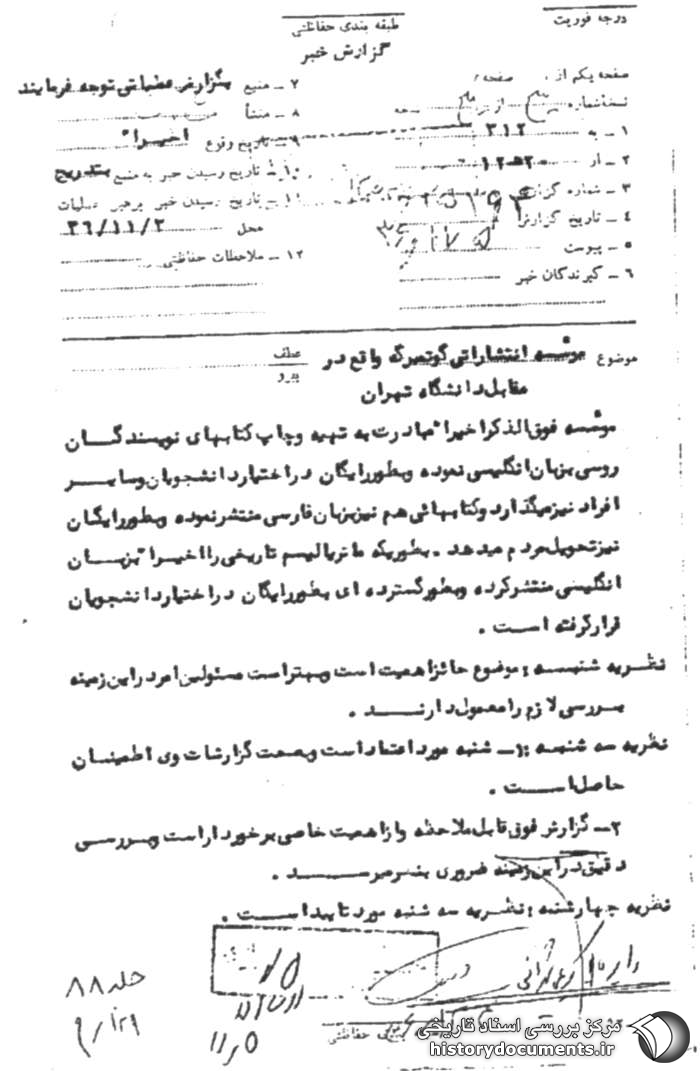 درجه فوریت
طبقه بندی حفاظتی
گزارش خبر
صفحه یکم از صفحه
نسخه شماره
۱ ـ به ۳۱۲
۲ ـ از ۲۰ﻫ۱۲
۳ ـ شماره گزارش
۴ ـ تاریخ گزارش
۵ ـ پیوست
۶ ـ گیرندگان خبر
۷ ـ منبع بگزارش عملیاتی توجه فرمایند
۸ ـ منشأ
۹ ـ تاریخ وقوع اخیراً
۱۰ ـ تاریخ رسیدن خبر به منبع بتدریج
۱۱ ـ تاریخ رسیدن خبر برهبر عملیات
محل ۳۶/۱۱/۲
۱۲ ـ ملاحظات حفاظتی
موضوع موسسه انتشاراتی گوتمبرگ واقع در عطف
مقابل دانشگاه تهران پیرو
موسسه فوق الذکر اخیراً مبادرت به تهیه و چاپ کتابهای نویسندگان
روسی بزبان انگلیسی نموده و بطور رایگان در اختیار دانشجویان و سایر
افراد نیز میگذارد و کتابهائی هم نیز بزبان فارسی منتشر نموده و بطور رایگان
نیز تحویل مردم میدهد . بطوریکه ماتریالیسم تاریخی را اخیراً بزبان
انگلیسی منتشر کرده و بطور گسترده ای بطور رایگان در اختیار دانشجویان
قرار گرفته است .
نظریه شنبه : موضوع حائز اهمیت است و بهتر است مسئولین امر در این زمینه
بررسی لازم را معمول دارند .
نظریه سه شنبه : ۱ـ شنبه مورد اعتماد است و بصحت گزارشات وی اطمینان
حاصل است .
۲ـ گزارش فوق قابل ملاحظه و از اهمیت خاصی برخوردار است و بررسی
دقیق در این زمینه ضروری بنظر میرسد .
نظریه چهارشنبه : نظریه سه شنبه مورد تایید است .
جلد ۸۸
۹/۱۲۹
حفاظتی
مرکز بررسی اسناد تاریخی
historydocuments.ir